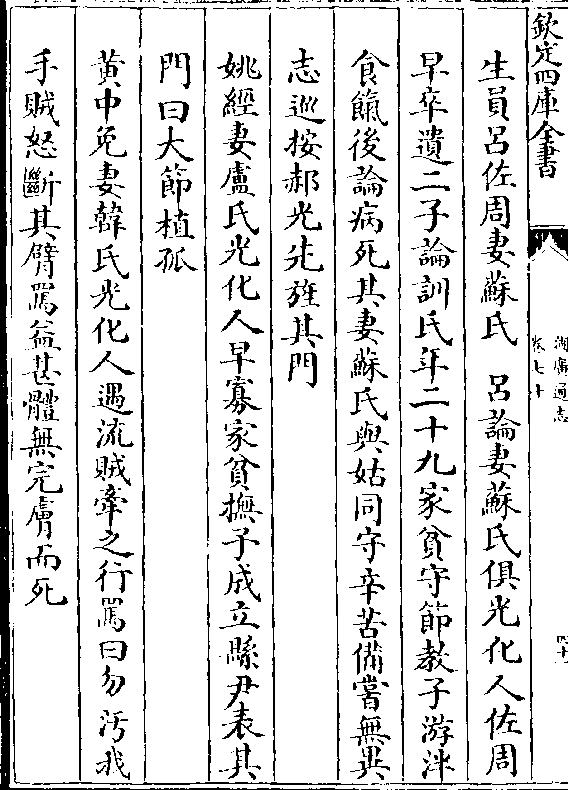 欽定四庫全書
湖廣通志
卷七十
生員呂佐周妻蘇氏　呂論妻蘇氏俱光化人佐周
早卒遺二子論訓氏年二十九家貧守節教子游泮
食餼後論病死其妻蘇氏與姑同守辛苦備嘗無異
志巡按郝光先旌其門
姚經妻盧氏光化人早寡家貧撫子成立縣尹表其
門曰大節植孤
黄中免妻韓氏光化人遇流賊牽之行罵曰勿汚我
手賊怒斷其臂罵益甚體無完膚而死